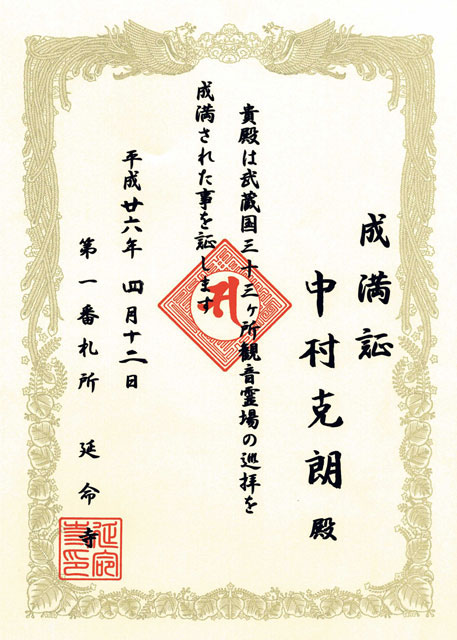 成満証
中村克朗 殿
貴殿は武蔵国三十三ヶ所観音霊場の巡拝を
成満された事を証します
平成廿六年 四月十二日
第一番札所 延命寺
延命
寺印